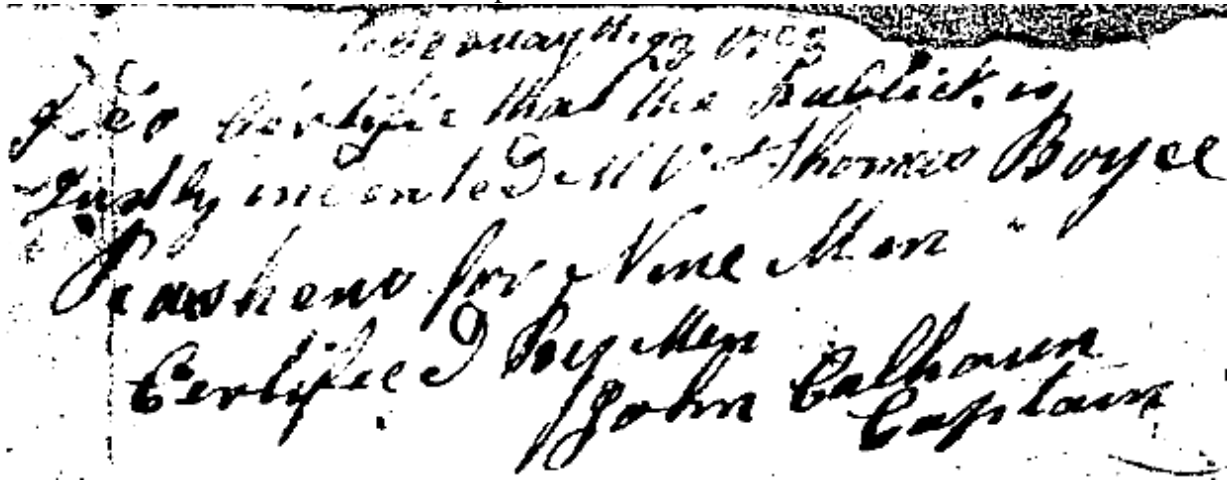 February the 23 1782
I do Certifie that the Publick is
Justly indented Mr Thomas Boyce
Rashens for Nine Men
Certifeed By Men
John Calhoun
Captain